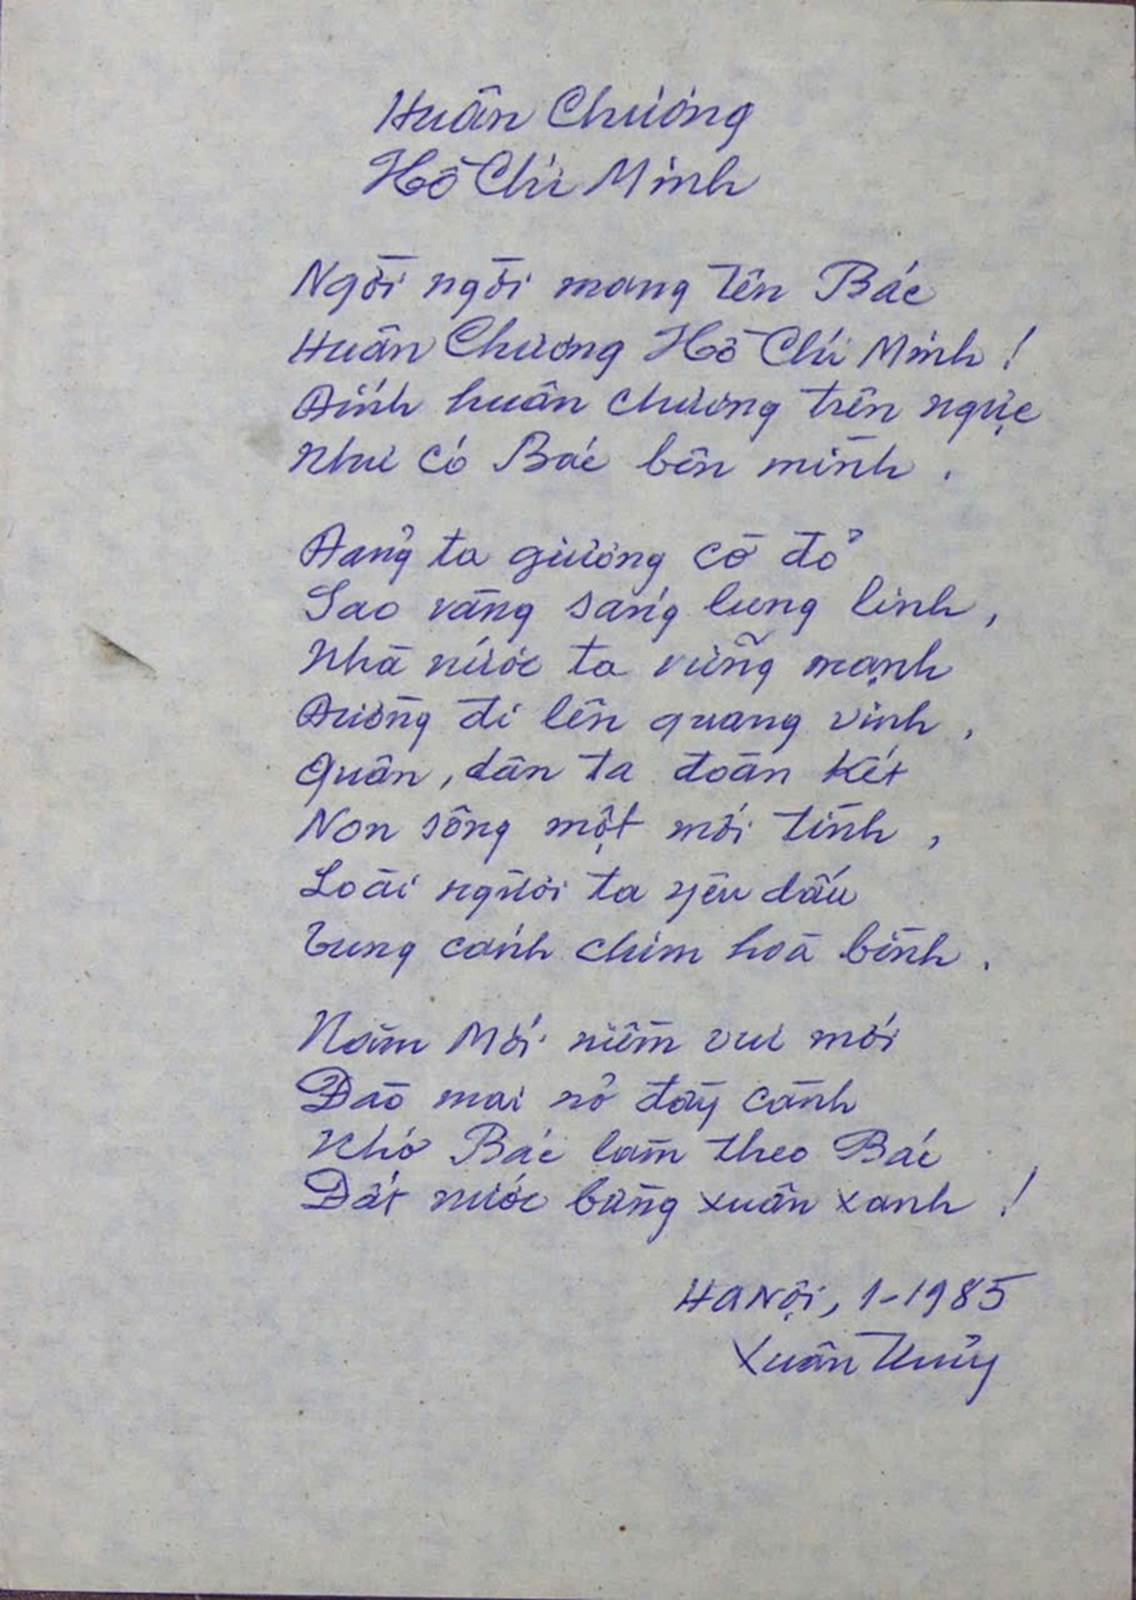 Huân Chương
Hồ Chí Minh
Ngời ngời mang tên Bác
Huân Chương Hồ Chí Minh !
Đính huân chương trên ngực
Như có Bác bên mình .
Đảng ta giương cờ đỏ
Sao vàng sáng lung linh ,
Nhà nước ta vững mạnh
Đường đi lên quang vinh ,
Quân , dân ta đoàn kết
Non sông một mối tình ,
Loài người ta yêu dấu
Tung cánh chim hoà bình .
Năm Mới niềm vui mới
Đào mai nở đầy cành
Nhớ Bác làm theo Bác
Đất nước bừng xuân xanh !
Hà Nội, 1-1985
Xuân Thủy